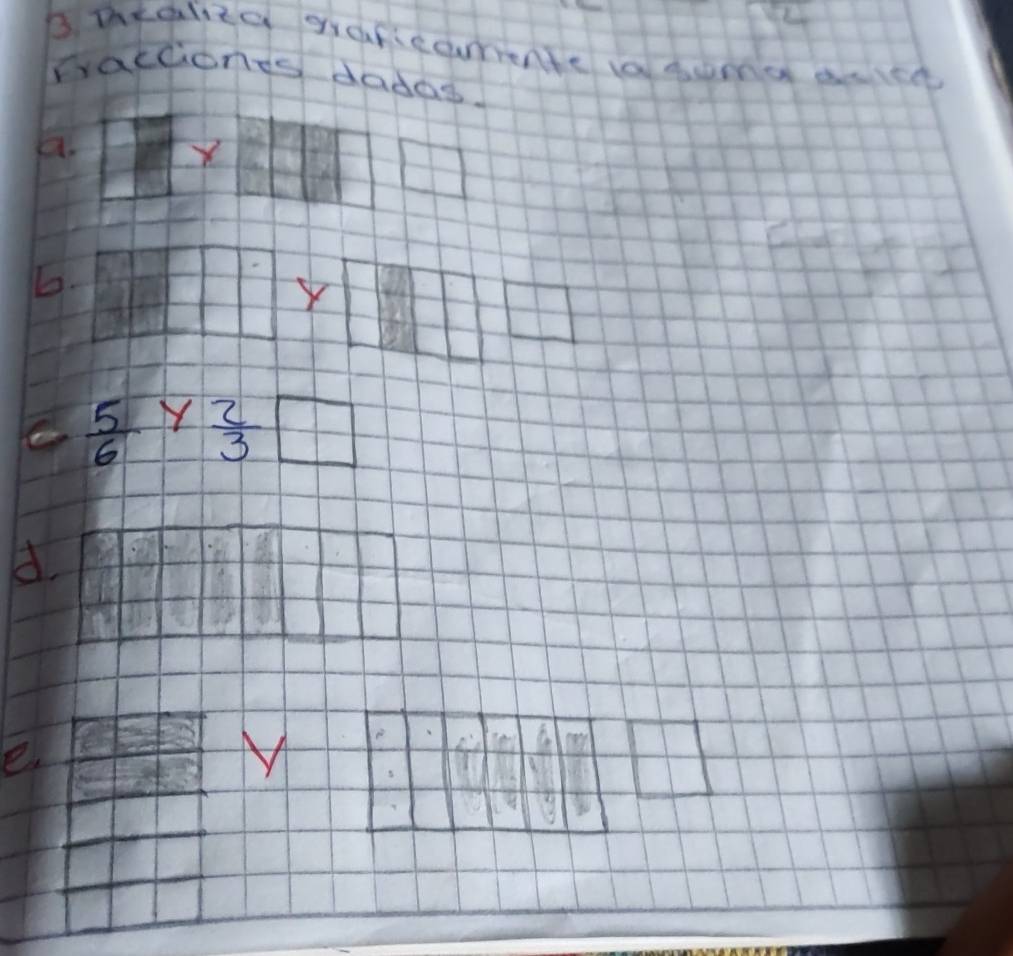 3. Realiza graficamente la suma de las
Fracciones dadas.
a. Y
b. Y
c 5/6 Y 2/3
d.
e. Y